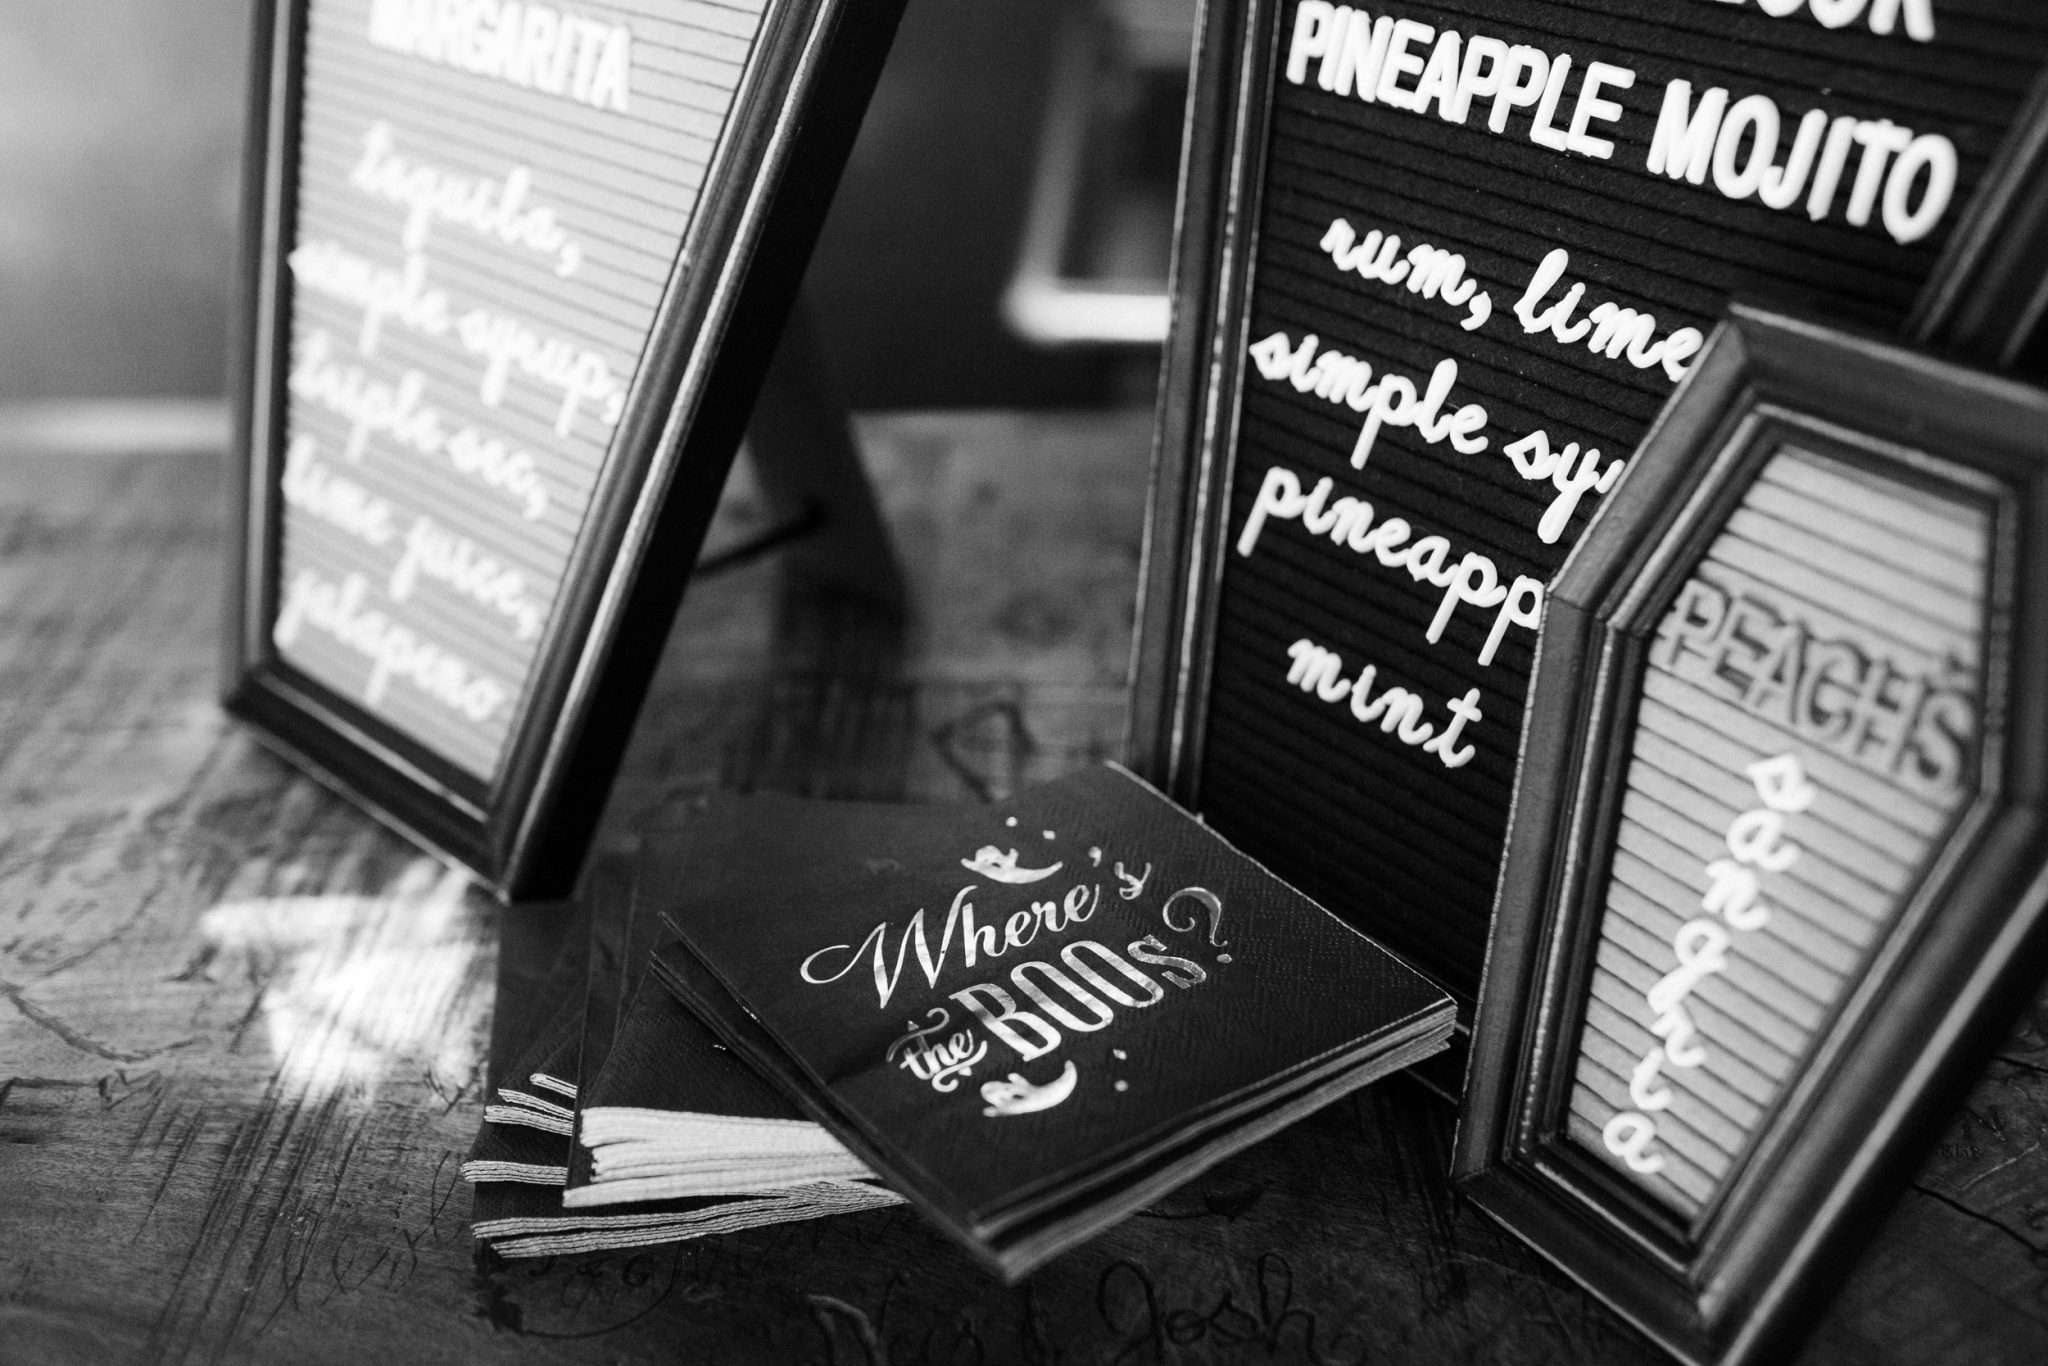 MARGARITA
tequila,
simple syrup,
triple sec,
lime juice,
jalapeno
PINEAPPLE MOJITO
rum, lime
simple sy
pineapp
mint
PEACH'S
sangria
Where's
the BOOs?
Josh